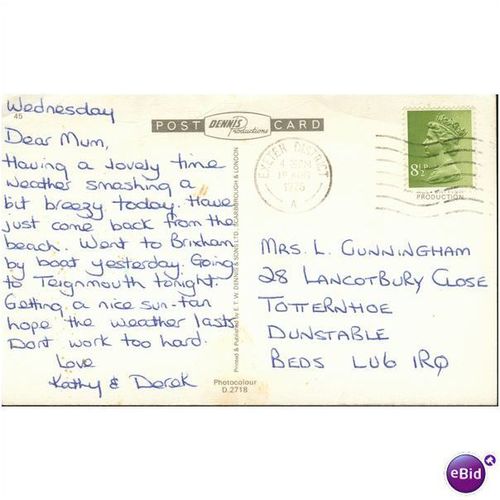 Wednesday
45
Dear Mum,
Having a lovely time
weather smashing a
bit breezy today. Have
just come back from the
beach. Went to Brixham
by boat yesterday. Going
to Teignmouth tonight.
Getting a nice sun-tan
hope the weather lasts
Dont work too hard.
Love
Kathy & Derek
POST DENNIS Productions CARD
Printed & Published by E.T.W. DENNIS & SONS LTD. SCARBOROUGH & LONDON
Photocolour
D.2718
EXETER DISTRICT
1976
A
8½P
PRODUCTION
MRS. L. CUNNINGHAM
28 LANCOTBURY CLOSE
TOTTERNHOE
DUNSTABLE
BEDS LU6 1RQ
eBid